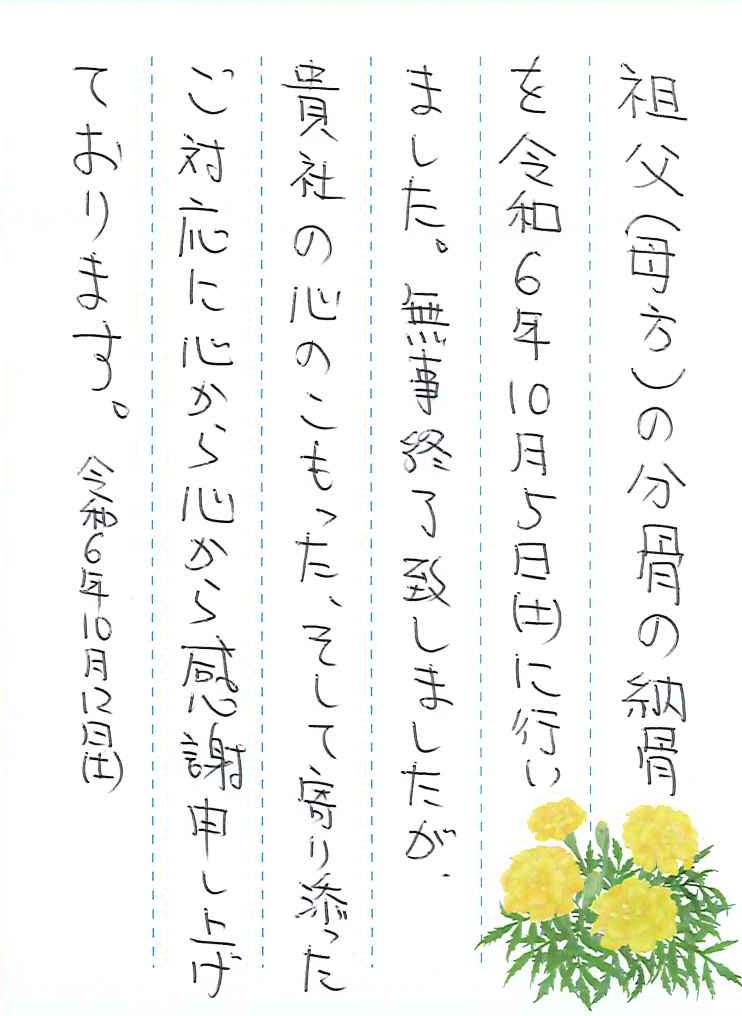 祖父(母方)の分骨の納骨
を令和6年10月5日(土)に行い
ました。無事終了致しましたが、
貴社の心のこもった、そして寄り添った
ご対応に心から心から感謝申し上げ
ております。 令和6年10月12日(土)